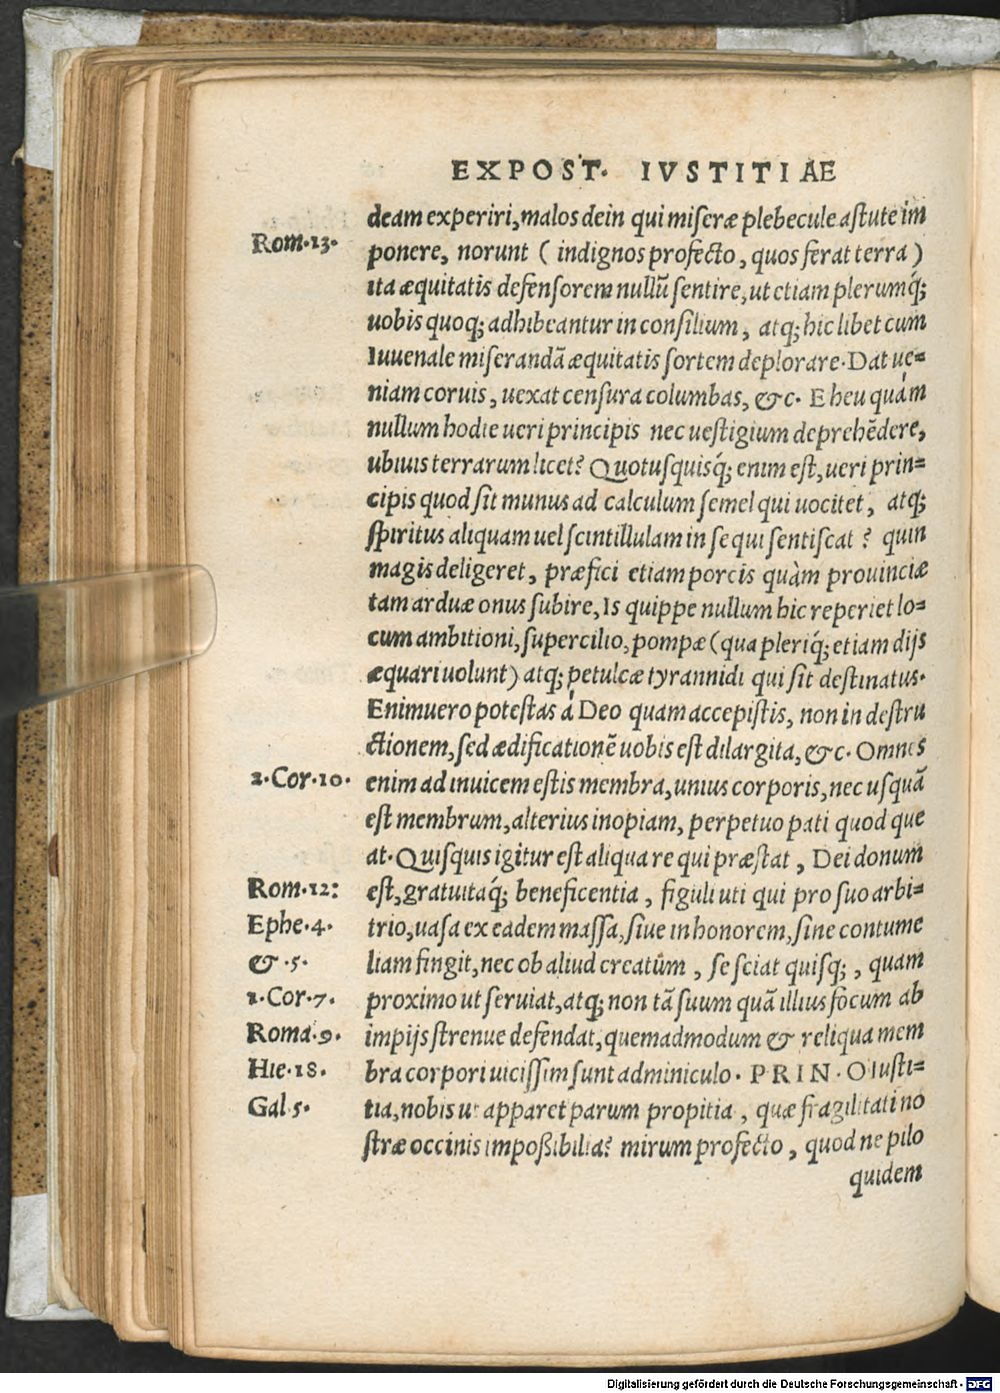 EXPOST. IVSTITIAE
deam experiri, malos dein qui miseræ plebecule astute im
Rom.13.
ponere, norunt ( indignos profecto, quos ferat terra )
ita æquitatis defensorem nullū sentire, ut etiam plerumq́;
uobis quoq; adhibeantur in consilium, atq; hic libet cum
Iuuenale miserandā æquitatis sortem deplorare. Dat ue=
niam coruis, uexat censura columbas, &c. Eheu quàm
nullum hodie ueri principis nec uestigium deprehēdere,
ubiuis terrarum licet? Quotusquisq́; enim est, ueri prin=
cipis quod sit munus ad calculum semel qui uocitet, atq;
spiritus aliquam uel scintillulam in se qui sentiscat ? quin
magis deligeret, præfici etiam porcis quàm prouinciæ
tam arduæ onus subire, Is quippe nullum hic reperiet lo=
cum ambitioni, supercilio, pompæ (qua pleriq́; etiam dijs
æquari uolunt) atq; petulcæ tyrannidi qui sit destinatus.
Enimuero potestas à Deo quam accepistis, non in destru
ctionem, sed ædificationē uobis est dilargita, &c. Omnes
2.Cor.10.
enim ad inuicem estis membra, unius corporis, nec usquā
est membrum, alterius inopiam, perpetuo pati quod que
at. Quisquis igitur est aliqua re qui præstat, Dei donum
Rom.12:
est, gratuitaq́; beneficentia, figuli uti qui pro suo arbi=
Ephe.4.
trio, uasa ex eadem massa, siue in honorem, sine contume
& .5.
liam fingit, nec ob aliud creatūm, se sciat quisq; , quam
1.Cor.7.
proximo ut seruiat, atq; non tā suum quā illius focum ab
Roma.9.
impijs strenue defendat, quemadmodum & reliqua mem
Hie.18.
bra corpori uicissim sunt adminiculo. PRIN. O Iusti=
Gal.5.
tia, nobis ut apparet parum propitia, quæ fragilitati no
stræ occinis impoßibilia? mirum profecto, quod ne pilo
quidem
Digitalisierung gefördert durch die Deutsche Forschungsgemeinschaft - DFG